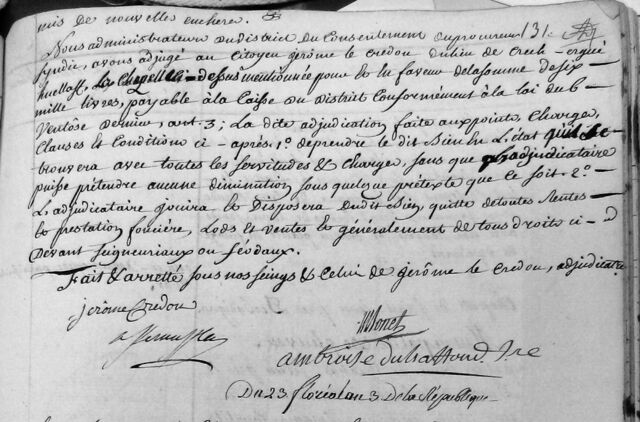 mis de nouvelles enchere.
131.
Nous administrateurs du district du Consentement du procureur
syndic, avons adjugé au Citoyen jerôme le credou du lieu de
mellash, La chapelle ci-dessus mentionnée pour et en faveur de la somme de six
mille livres, payable à la Caisse du District Conformément à la loi du 6
Ventôse Dernier, ant. 3; La dite adjudication faite aux points, Charges,
Clauses et Conditions ci-après. 1.º de prendre le dit Bien en L'état qu'il se
trouvera avec toutes les servitudes & Charges, sans que l'adjudicataire
puisse prétendre aucune diminution sous quelque prétexte que ce soit. 2.º
L'adjudicataire jouira et Disposera Dudit Bien, quitte de toutes Rentes
et prestation foncière, Lods et ventes et généralement de tous droits ci-D
Devant seigneuriaux ou féodaux.
Fait & arretté sous nos seings & Celui de jerôme le credou, adjudicatre
jerôme Credou
ambroise
Du 23 floréal an 3 De la République